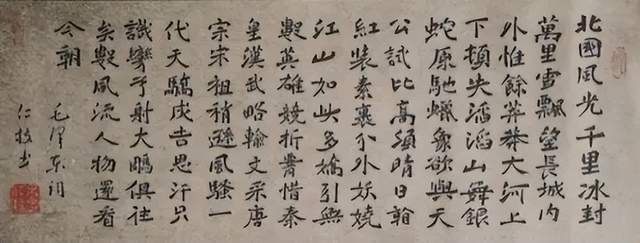 北國風光千里冰封
萬里雪飄望長城内
外惟餘莽莽大河上
下頓失滔滔山舞銀
蛇原馳蠟象欲與天
公試比高須晴日
紅裝素裹分外妖嬈
江山如此多嬌引無
數英雄競折惜秦
皇漢武略輸文采唐
宗宋祖稍遜風騷一
代天驕成吉思汗只
識彎弓射大鵰俱往
矣數風流人物還看
今朝
毛澤东词
仁书